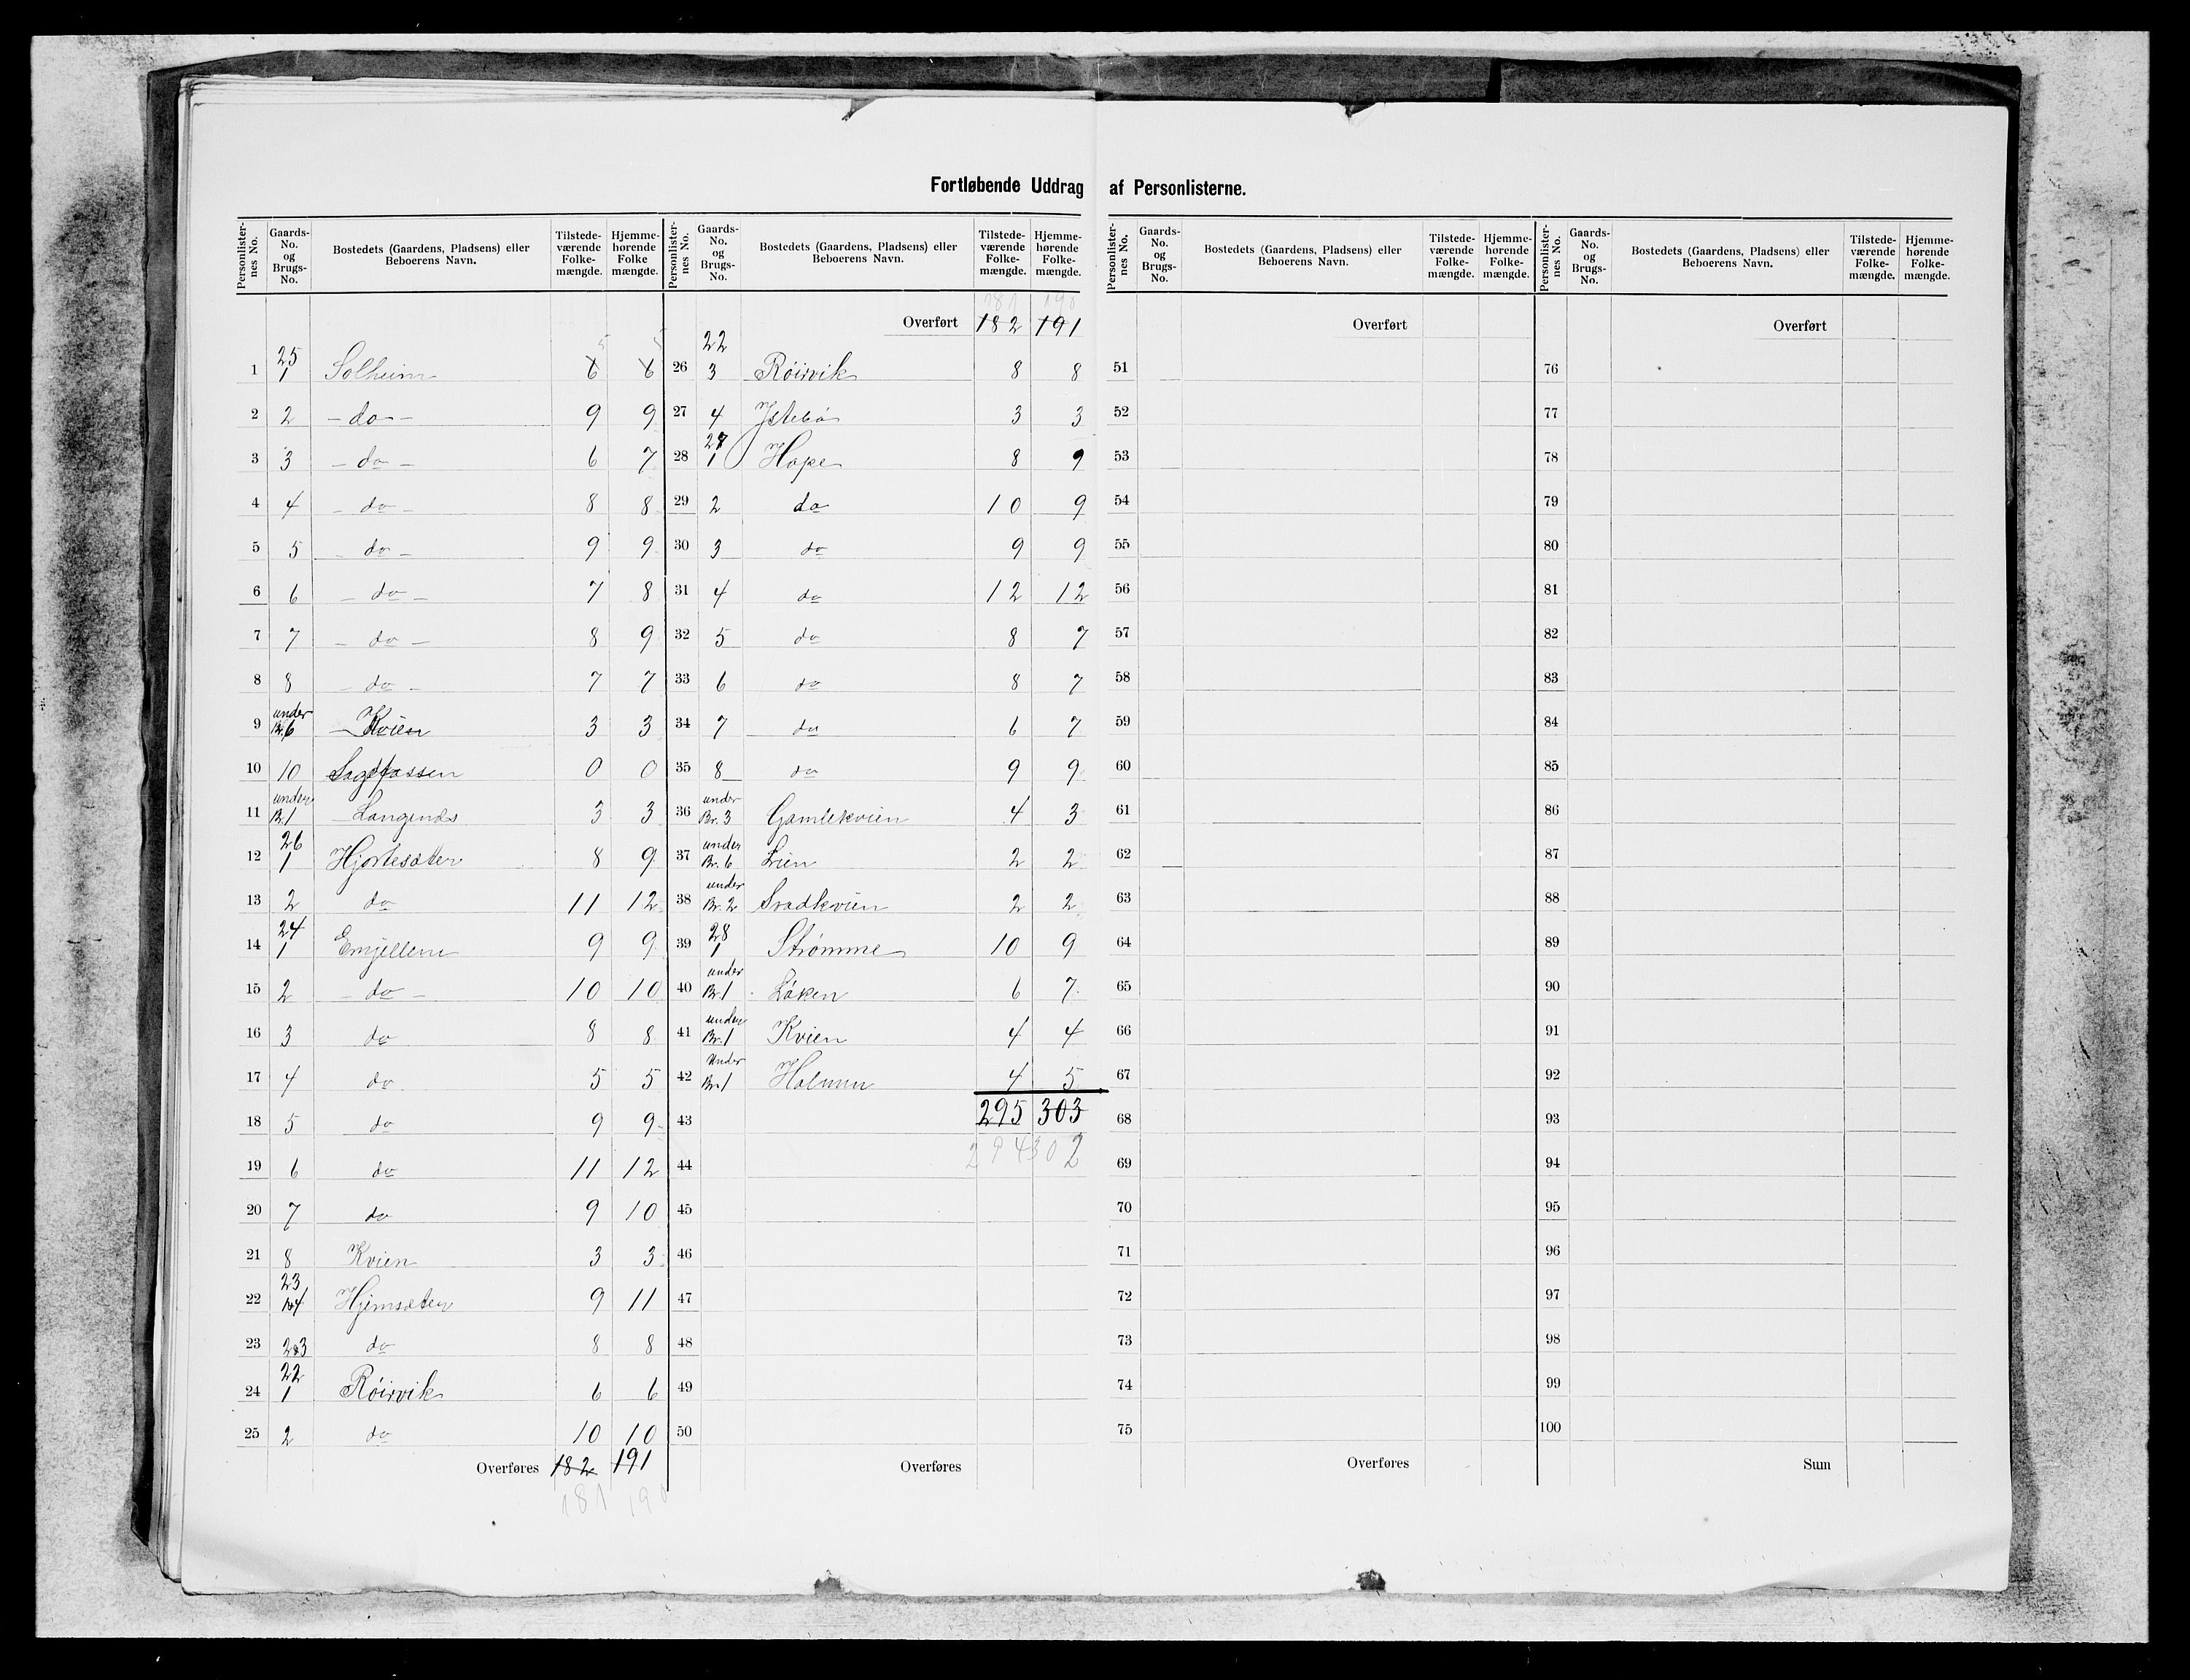 Fortløbende Uddrag af Personlisterne.
Personlisternes No. Gaards-No. og Brugs-No. Bostedets (Gaardens, Pladsens) eller Beboerens Navn. Tilstedeværende Folkemængde. Hjemmehørende Folkemængde.
1 25 1 Solheim 6 5 6 5
2 2 - do - 9 9
3 3 - do - 6 7
4 4 - do - 8 8
5 5 - do - 9 9
6 6 - do - 7 8
7 7 - do - 8 9
8 8 - do - 7 7
9 under Br. 6 Kvien 3 3
10 10 0 0
11 under Br. 1 3 3
12 26 1 Hjortesæter 8 9
13 2 do 11 12
14 24 1 Emjellem 9 9
15 2 - do - 10 10
16 3 do 8 8
17 4 do 5 5
18 5 do 9 9
19 6 do 11 12
20 7 do 9 10
21 8 Kvien 3 3
22 23 1&4 Hjemsæter 9 11
23 2&3 do 8 8
24 22 1 Röirvik 6 6
25 2 do 10 10
Overføres 182 191
181 190
Personlisternes No. Gaards-No. og Brugs-No. Bostedets (Gaardens, Pladsens) eller Beboerens Navn. Tilstedeværende Folkemængde. Hjemmehørende Folkemængde.
181 190
Overført 182 191
26 22 3 Röirvik 8 8
27 4 Istebö 3 3
28 27 1 Hope 8 9
29 2 do 10 9
30 3 do 9 9
31 4 do 12 12
32 5 do 8 7
33 6 do 8 7
34 7 do 6 7
35 8 do 9 9
36 under Br. 3 Gamlekvien 4 3
37 under Br. 6 Lien 2 2
38 under Br. 2 Svadkvien 2 2
39 28 1 Strømme 10 9
40 under Br. 1 Löken 6 7
41 under Br. 1 Kvien 4 4
42 Under Br. 1 Holmen 4 5
43 295 303
44 294 302
45
46
47
48
49
50
Overføres
Personlisternes No. Gaards-No. og Brugs-No. Bostedets (Gaardens, Pladsens) eller Beboerens Navn. Tilstedeværende Folkemængde. Hjemmehørende Folkemængde.
Overført
51
52
53
54
55
56
57
58
59
60
61
62
63
64
65
66
67
68
69
70
71
72
73
74
75
Overføres
Personlisternes No. Gaards-No. og Brugs-No. Bostedets (Gaardens, Pladsens) eller Beboerens Navn. Tilstedeværende Folkemængde. Hjemmehørende Folkemængde.
Overført
76
77
78
79
80
81
82
83
84
85
86
87
88
89
90
91
92
93
94
95
96
97
98
99
100
Sum